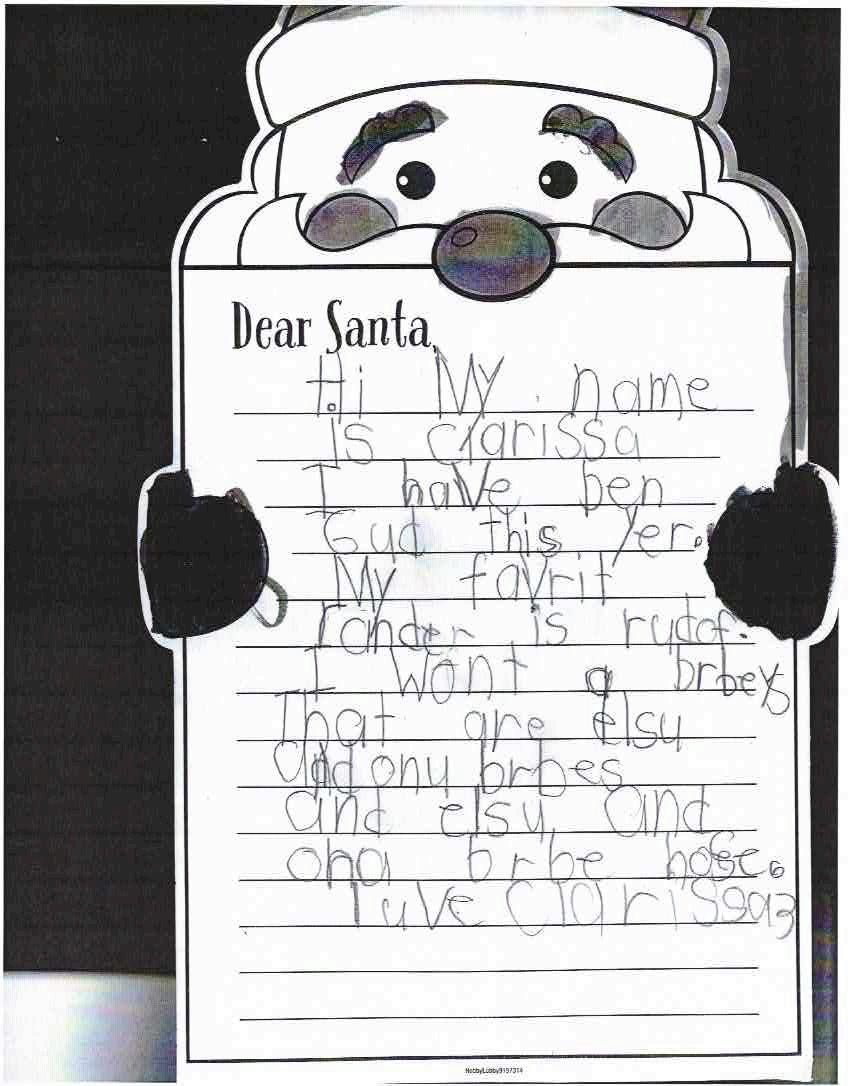 Dear Santa,
Hi My name
is Clarissa
I have ben
Gud this yer.
My favrit
rander is rudof.
I Wont a brbeys
That are elsu
and onu brbes
and elsu and
ona brbe hose.
Luve Clarissa
HobbyLobby9197314